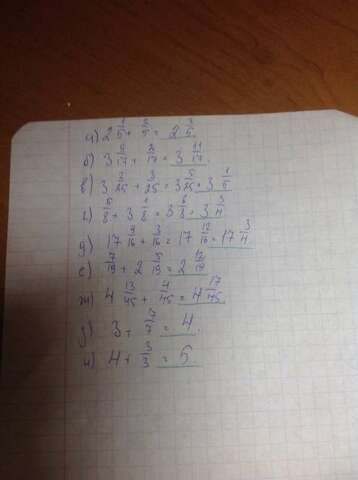 а) 2 1/5 + 2/5 = 2 3/5.
б) 3 9/17 + 2/17 = 3 11/17.
в) 3 2/25 + 3/25 = 3 5/25 = 3 1/5
г) 5/8 + 3 1/8 = 3 6/8 = 3 3/4
д) 17 9/16 + 3/16 = 17 12/16 = 17 3/4
е) 7/19 + 2 5/19 = 2 12/19
ж) 4 13/45 + 4/45 = 4 17/45
з) 3 + 7/7 = 4.
и) 4 + 3/3 = 5